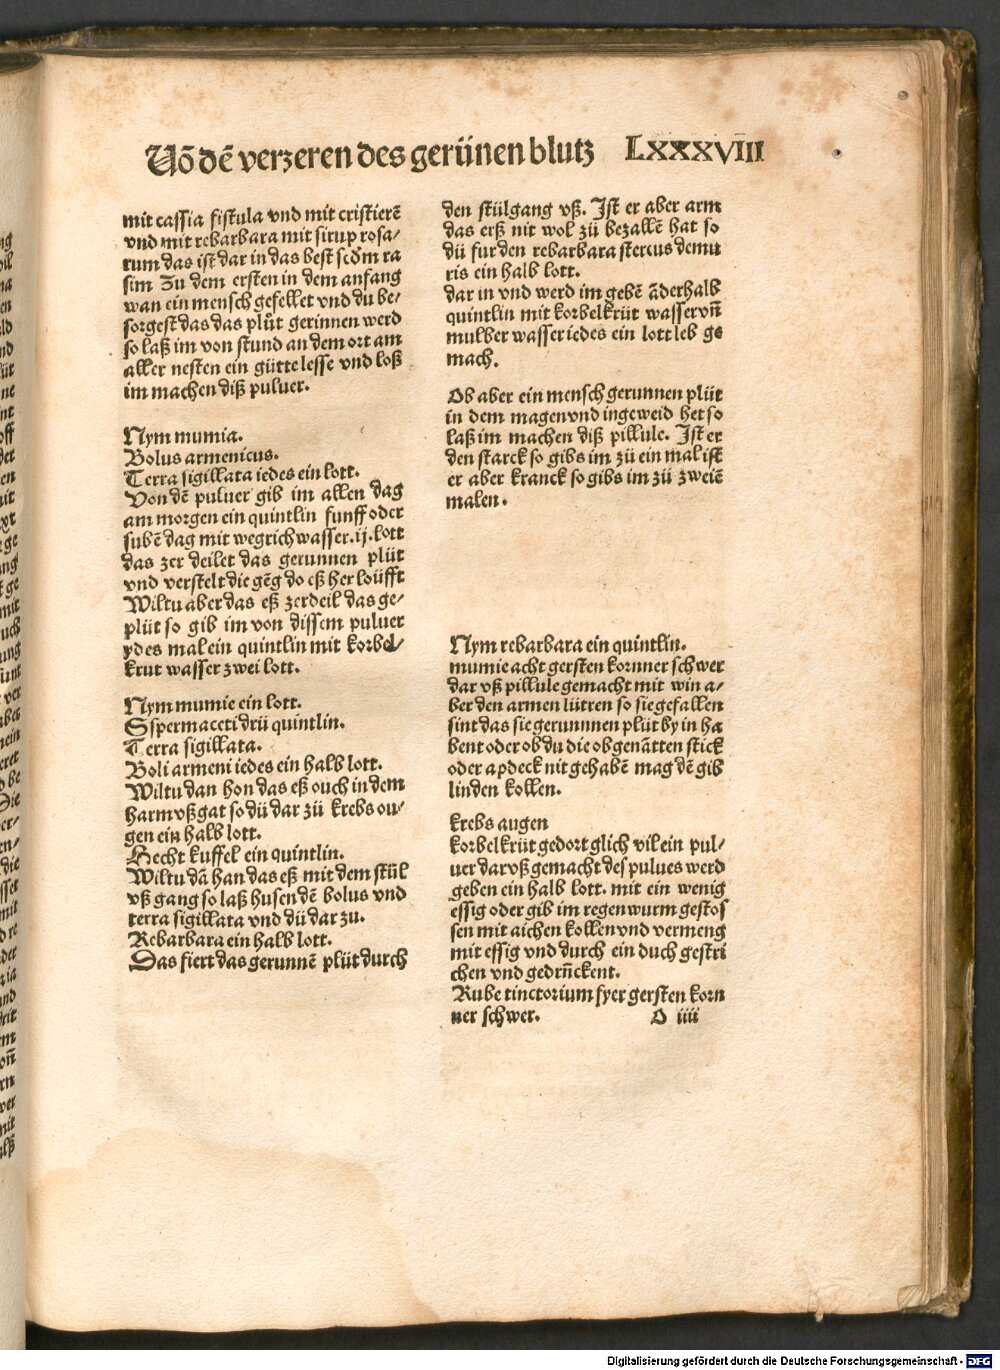 Uō dē verzeren des gerünen blutz LXXXVIII
mit cassia fistula vnd mit cristierē
vnd mit rebarbara mit sirup rosa/
rum das ist dar in das best
sim Zu dem ersten in dem anfang
wan ein mensch gefellet vnd du be/
sorgest das das plüt gerinnen werd
so laß im von stund an dem ort am
aller nesten ein gütte lesse vnd loß
im machen diß puluer.
Nym mumia.
Bolus armenicus.
Terra sigillata iedes ein lott.
Von dē puluer gib im allen dag
am morgen ein quintlin funff oder
subē dag mit wegrich wasser .ij. lott
das zer deilet das gerunnen plüt
vnd verstelt die gēg do eß her loüfft
Wiltu aber das eß zerdeil das ge/
plüt so gib im von dissem puluer
ydes mal ein quintlin mit korbel/
krut wasser zwei lott.
Nym mumie ein lott.
Sspermaceti drü quintlin.
Terra sigillata.
Boli armeni iedes ein halb lott.
Wiltu dan hon das eß ouch in dem
harm vßgat so dü dar zü krebs ou/
gen ein halb lott.
Hecht kuffel ein quintlin.
Wiltu dā han das eß mit dem stül
vß gang so laß husen dē bolus vnd
terra sigillata vnd dü dar zu.
Rebarbara ein halb lott.
Das fiert das gerunnē plüt durch
den stülgang vß. Ist er aber arm
das erß nit wol zü bezallē hat so
dü fur den rebarbara stercus demu
ris ein halb lott.
dar in vnd werd im gebē āderhalb
quintlin mit korbelkrüt wasser vñ
mulber wasser iedes ein lott leb ge
mach.
Ob aber ein mensch gerunnen plüt
in dem magen vnd ingeweid het so
laß im machen diß pillule. Ist er
den starck so gibs im zü ein mal ist
er aber kranck so gibs im zü zweiē
malen.
Nym rebarbara ein quintlin.
mumie acht gersten kornner schwer
dar vß pillule gemacht mit win a/
ber den armen lütren so sie gefallen
sint das sie gerunnnen plüt by in ha
bent oder ob du die obgenātten stick
oder apdeck nit gehabē mag dē gib
linden kollen.
krebs augen
korbelkrüt gedort glich vil ein pul/
uer dar vß gemacht des pulues werd
geben ein halb lott. mit ein wenig
essig oder gib im regenwurm gestos
sen mit aichen kollen vnd vermeng
mit essig vnd durch ein duch gestri
chen vnd gedrñckent.
Rube tinctorium fyer gersten korn
ner schwer. O iiii
Digitalisierung gefördert durch die Deutsche Forschungsgemeinschaft - DFG